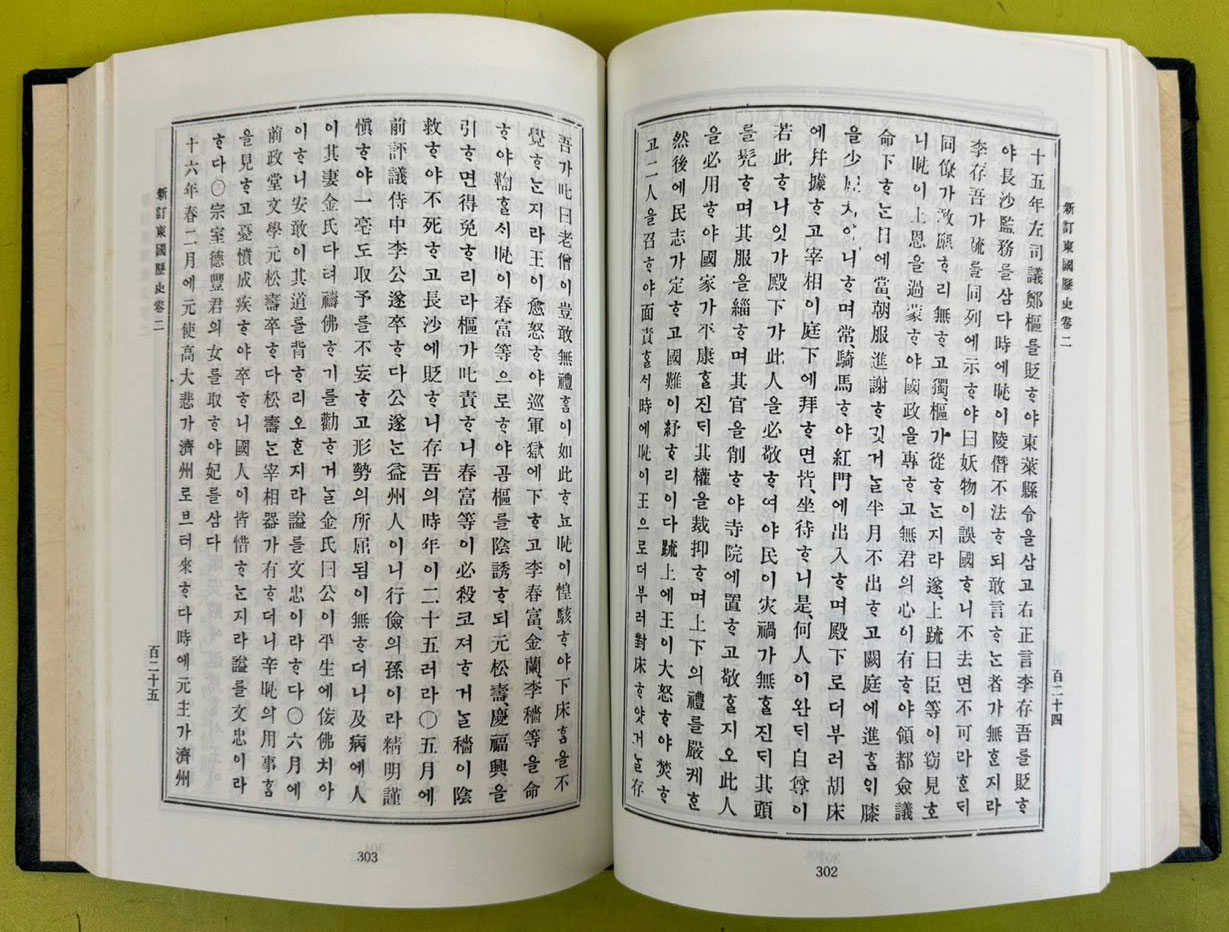 新訂東國歷史卷二
百二十四
十五年左司議鄭樞를貶ᄒᆞ야東萊縣令을삼고右正言李存吾를貶ᄒᆞ
야長沙監務를삼다時에旽이陵僭不法ᄒᆞ되敢言ᄒᆞᄂᆞᆫ者가無ᄒᆞᆫ지라
李存吾가疏를同列에示ᄒᆞ야曰妖物이誤國ᄒᆞ니不去면不可라ᄒᆞᆫᄃᆡ
同僚가敢應ᄒᆞ리無ᄒᆞ고獨、樞가從ᄒᆞᄂᆞᆫ지라遂、上疏曰臣等이窃見ᄒᆞ
니旽이上恩을過蒙ᄒᆞ야國政을專ᄒᆞ고無君의心이有ᄒᆞ야領都僉議
命下ᄒᆞᄂᆞᆫ日에當、朝服進謝ᄒᆞᆯ깃거ᄂᆞᆯ半月不出ᄒᆞ고闕庭에進ᄒᆞᆷᄋᆡ膝
을少屈치아니ᄒᆞ며常、騎馬ᄒᆞ야紅門에出入ᄒᆞ며殿下로더부러胡床
에幷據ᄒᆞ고宰相이庭下에拜ᄒᆞ면皆、坐待ᄒᆞ니是、何人이완ᄃᆡ自尊이
若此ᄒᆞ니잇가殿下가此人을必敬ᄒᆞ여야民이灾禍가無ᄒᆞᆯ진ᄃᆡ其頭
를髡ᄒᆞ며其服을緇ᄒᆞ며其官을削ᄒᆞ야寺院에置ᄒᆞ고敬ᄒᆞᆯ지오此人
을必用ᄒᆞ야國家가平康ᄒᆞᆯ진ᄃᆡ其權을裁抑ᄒᆞ며上下의禮를嚴케ᄒᆞᆫ
然後에民志가定ᄒᆞ고國難이紓ᄒᆞ리이다疏上에王이大怒ᄒᆞ야焚ᄒᆞ
고二人을召ᄒᆞ야面責ᄒᆞᆯᄉᆡ時에旽이王으로더부러對床ᄒᆞ얏거ᄂᆞᆯ存
302
吾가叱曰老僧이豈敢無禮ᄒᆞᆷ이如此ᄒᆞ뇨旽이惶駭ᄒᆞ야下床ᄒᆞᆷ을不
覺ᄒᆞᄂᆞᆫ지라王이愈怒ᄒᆞ야巡軍獄에下ᄒᆞ고李春富、金蘭、李穡等을命
ᄒᆞ야鞫ᄒᆞᆯᄉᆡ旽이春富等으로ᄒᆞ야곰樞를陰誘ᄒᆞ되元松壽、慶福興을
引ᄒᆞ면得免ᄒᆞ리라樞가叱責ᄒᆞ니春富等이必殺코져ᄒᆞ거ᄂᆞᆯ穡이陰
救ᄒᆞ야不死ᄒᆞ고長沙에貶ᄒᆞ니存吾의時年이二十五러라〇五月에
前評議侍中李公遂卒ᄒᆞ다公遂ᄂᆞᆫ益州人이니行儉의孫이라精明謹
愼ᄒᆞ야一毫도取予를不妄ᄒᆞ고形勢의所屈됨이無ᄒᆞ더니及病에人
이其妻金氏다려禱佛ᄒᆞ기를勸ᄒᆞ거ᄂᆞᆯ金氏曰公이平生에侫佛치아
이ᄒᆞ니安敢이其道를背ᄒᆞ리오ᄒᆞᆫ지라謚를文忠이라ᄒᆞ다〇六月에
前政堂文學元松壽卒ᄒᆞ다松壽ᄂᆞᆫ宰相器가有ᄒᆞ더니辛旽의用事ᄒᆞᆷ
을見ᄒᆞ고憂憤成疾ᄒᆞ야卒ᄒᆞ니國人이皆惜ᄒᆞᄂᆞᆫ지라謚를文忠이라
ᄒᆞ다〇宗室德豐君의女를取ᄒᆞ야妃를삼다
十六年春二月에元使高大悲가濟州로브터來ᄒᆞ다時에元主가濟州
新訂東國歷史卷二
百二十五
303